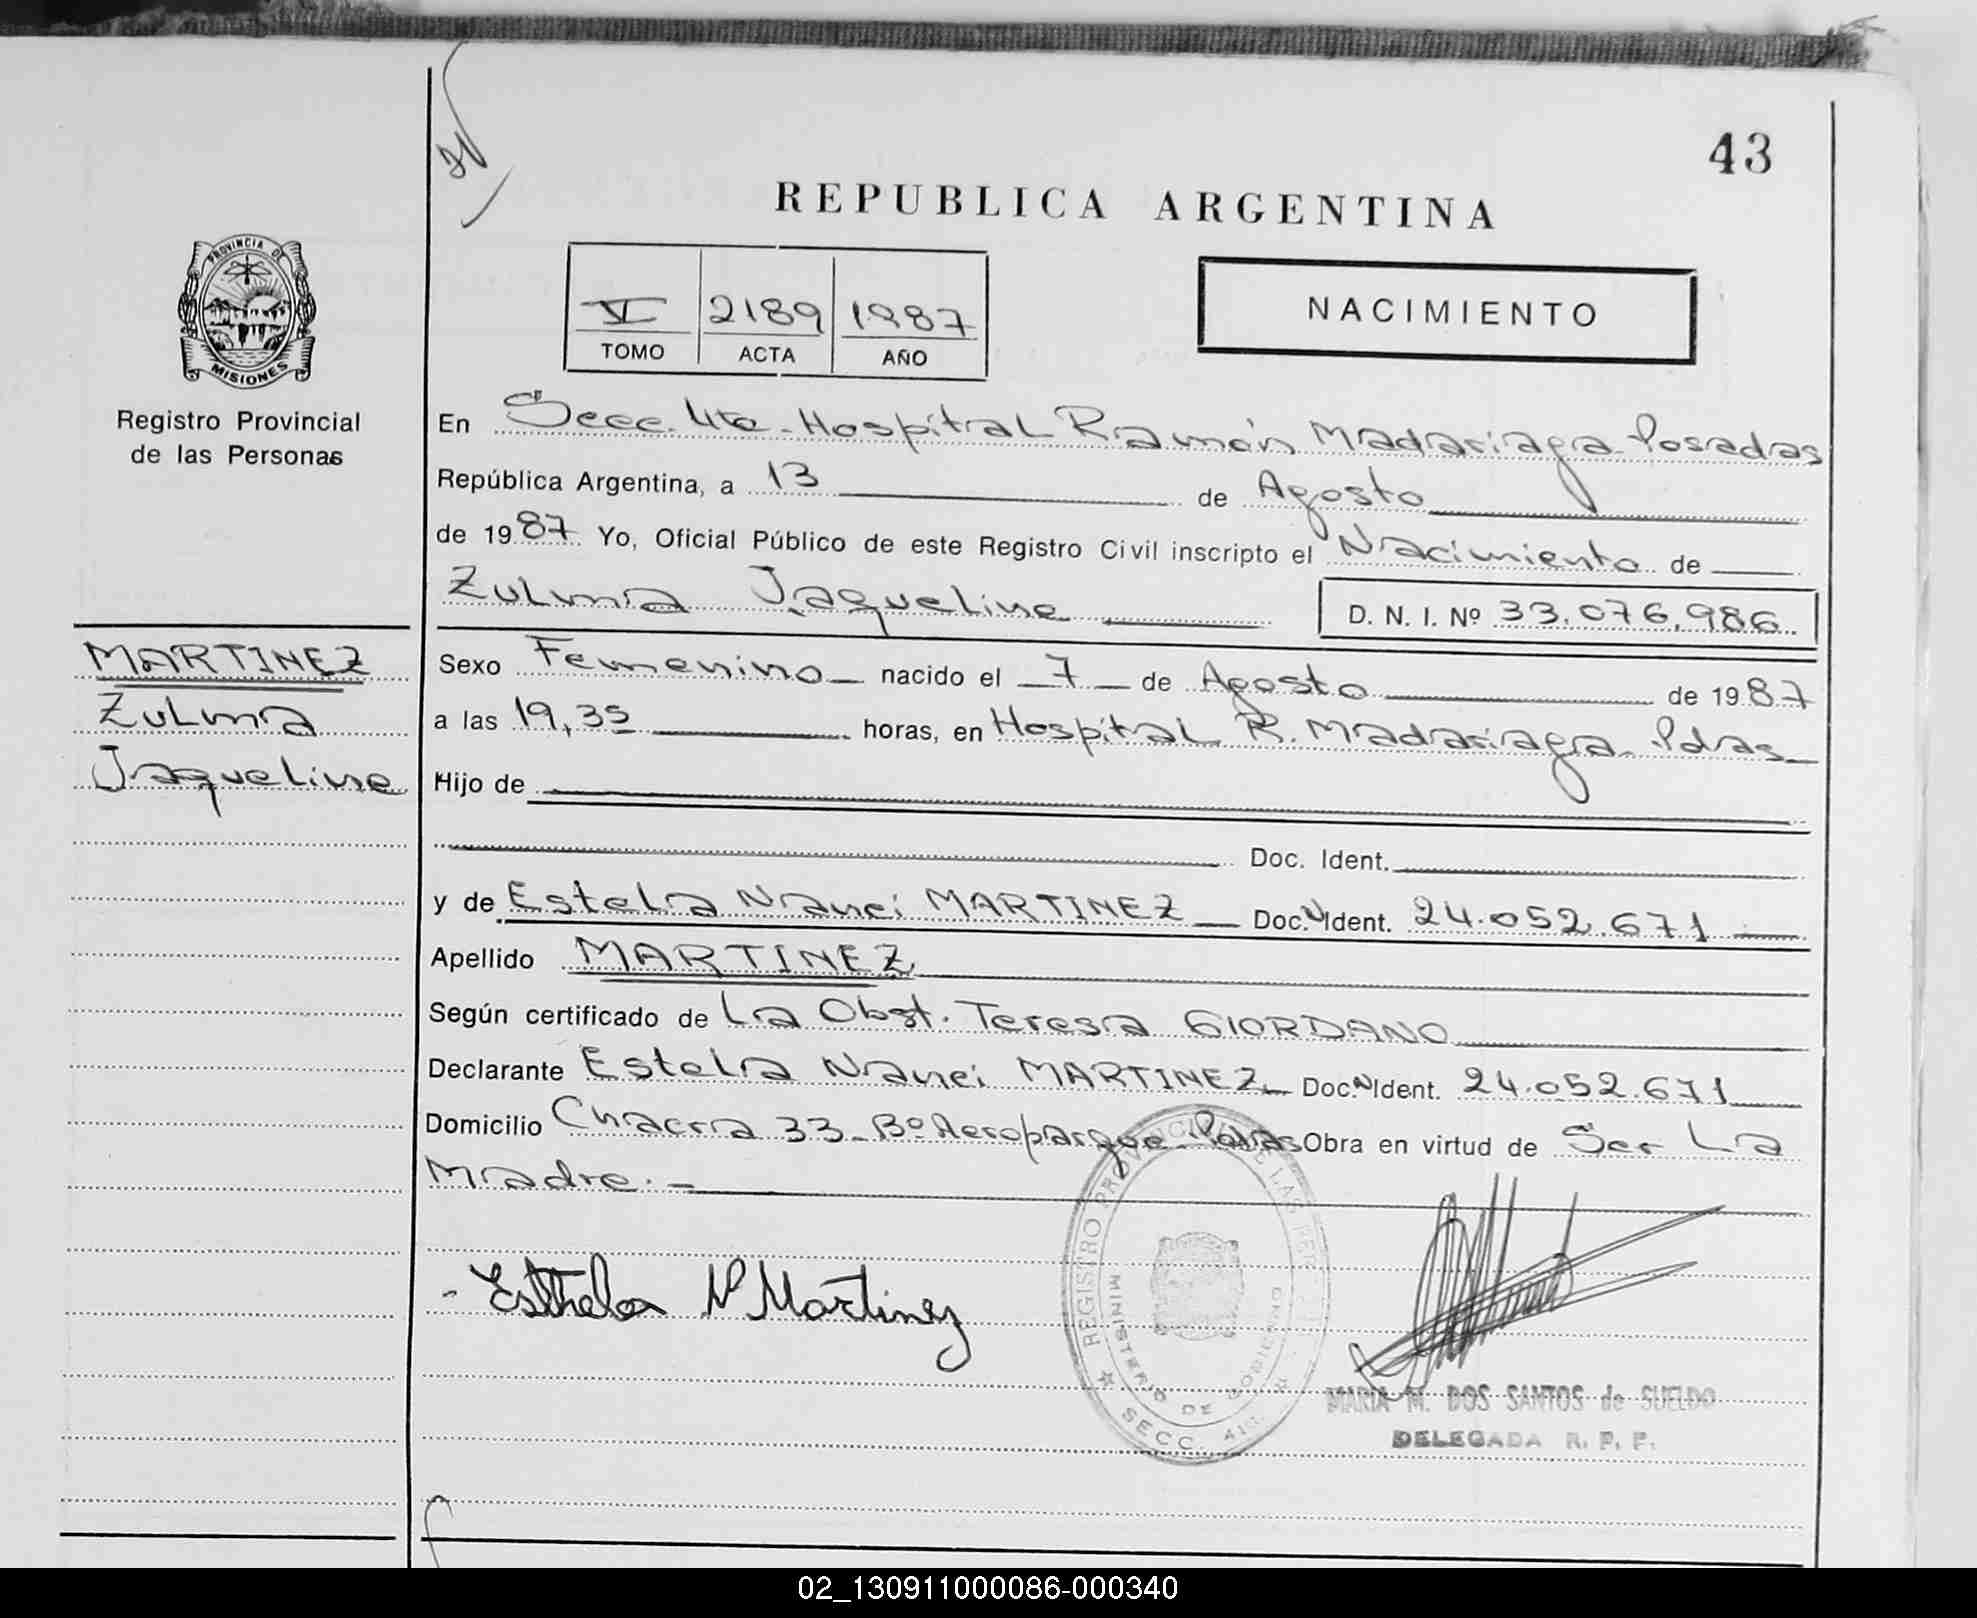 43
REPUBLICA ARGENTINA
PROVINCIA DE
MISIONES
Registro Provincial
de las Personas
VI 2189 1987
TOMO ACTA AÑO
NACIMIENTO
En Secc. 4ta. Hospital Ramón Madariaga Posadas
República Argentina, a 13 de Agosto
de 1987 Yo, Oficial Público de este Registro Civil inscripto el Nacimiento de
Zulma Jaqueline D. N. I. Nº 33.076.986
MARTINEZ
Zulma
Jaqueline
Sexo Femenino nacido el 7 de Agosto de 1987
a las 19,35 horas, en Hospital R. Madariaga. Pdas
Hijo de
Doc. Ident.
y de Estela Nanci MARTINEZ Doc. Ident. 24.052.671
Apellido MARTINEZ
Según certificado de La Obst. Teresa GIORDANO
Declarante Estela Nanci MARTINEZ Doc. Ident. 24.052.671
Domicilio Chacra 33. Bº Aeroparque. Pdas Obra en virtud de Ser La
Madre.-
Esthela N Martinez
REGISTRO PROVINCIAL DE LAS PER
MINISTERIO DE GOBIERNO
SECC. 4ta.
MARIA M. DOS SANTOS de SUELDO
DELEGADA R. P. P.
02_130911000086-000340